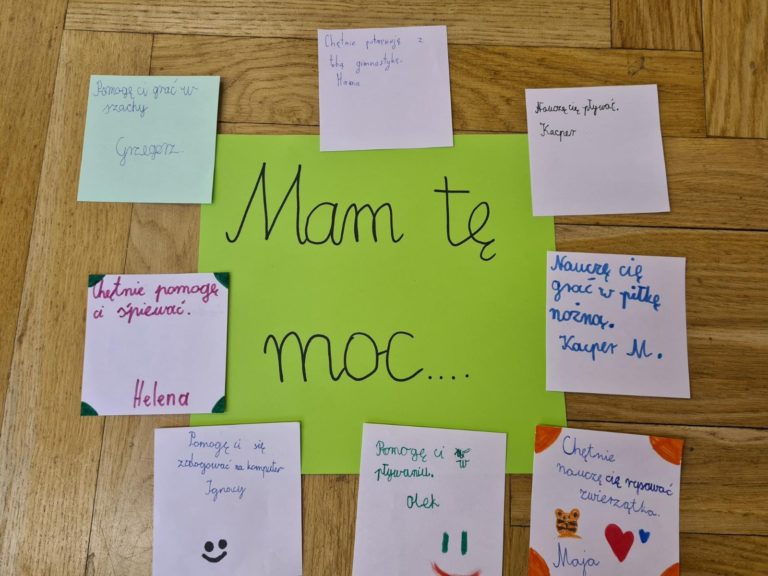 Mam tę
moc....
Pomogę ci grać w
szachy
Grzegorz.
Chętnie potrenuję z
tobą gimnastykę.
Hania
Nauczę cię pływać.
Kacper
Chętnie pomogę
ci śpiewać.
Helena
Nauczę cię
grać w piłkę
nożną.
Kacper M.
Pomogę ci się
zalogować na komputer
Ignacy
Pomogę ci w
pływaniu.
Olek
Chętnie
nauczę cię rysować
zwierzątka.
Maja